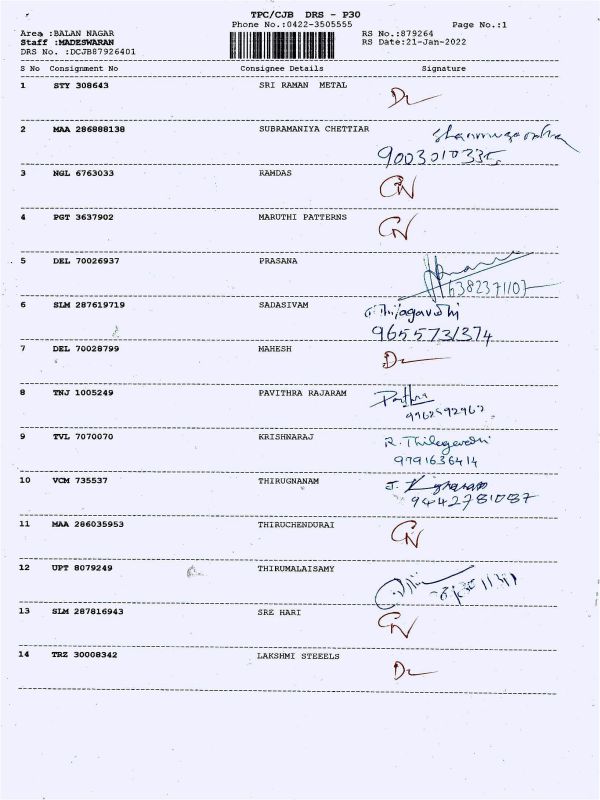 TPC/CJB DRS - P30
Phone No.:0422-3505555 Page No.:1
Area :BALAN NAGAR RS No.:879264
Staff :MADESWARAN RS Date:21-Jan-2022
DRS No. :DCJB87926401
S No Consignment No Consignee Details Signature
1 STY 308643 SRI RAMAN METAL
2 MAA 286888138 SUBRAMANIYA CHETTIAR
9003010335
3 NGL 6763033 RAMDAS
4 PGT 3637902 MARUTHI PATTERNS
5 DEL 70026937 PRASANA
6382371107
6 SLM 287619719 SADASIVAM
9655731374
7 DEL 70028799 MAHESH
8 TNJ 1005249 PAVITHRA RAJARAM
9 TVL 7070070 KRISHNARAJ R. Thilagavathi
9791636414
10 VCM 735537 THIRUGNANAM
9442781087
11 MAA 286035953 THIRUCHENDURAI
12 UPT 8079249 THIRUMALAISAMY
13 SLM 287816943 SRE HARI
14 TRZ 30008342 LAKSHMI STEEELS